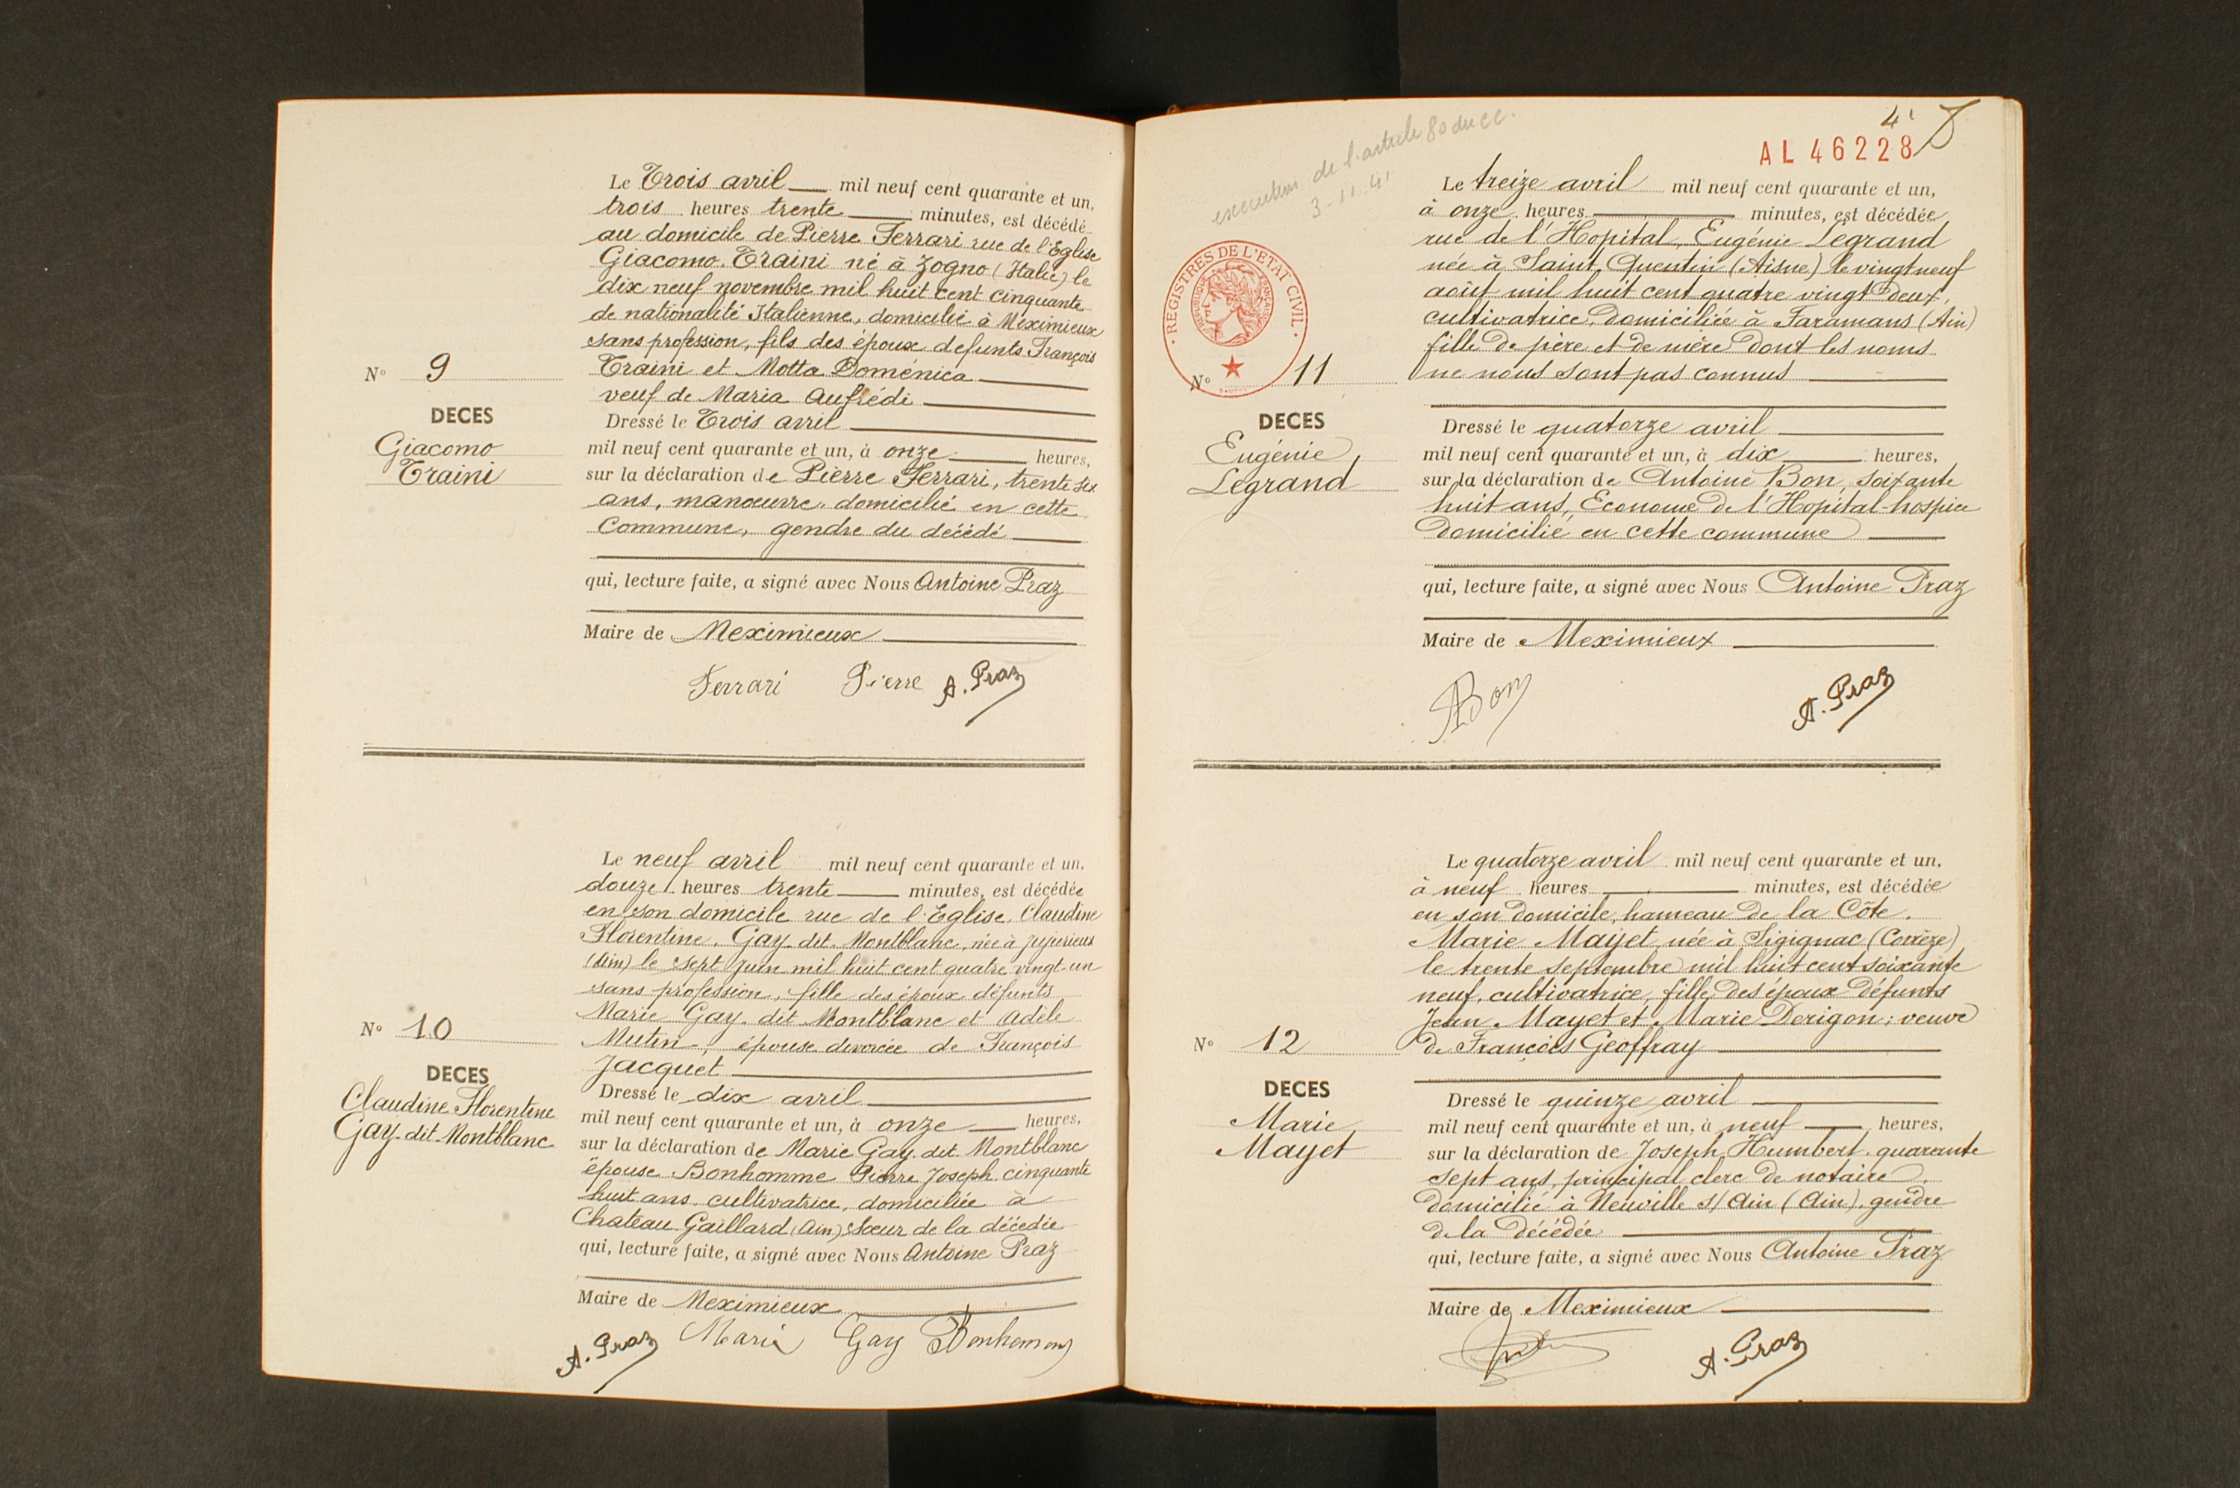 Le Trois avril mil neuf cent quarante et un,
trois heures trente minutes, est décédé
au domicile de Pierre Ferrari rue de l'Eglise
Giacomo Traini né à Zogno (Italie) le
dix neuf novembre mil huit cent cinquante
de nationalité Italienne, domicilié à Meximieux
sans profession, fils des époux defunts François
Traini et Motta Doménica
veuf de Maria Aufrédi
N° 9
DECES
Giacomo
Traini
Dressé le Trois avril
mil neuf cent quarante et un, à onze heures,
sur la déclaration de Pierre Ferrari, trente six
ans, manœuvre, domicilié en cette
Commune, gendre du décédé
qui, lecture faite, a signé avec Nous Antoine Praz
Maire de Meximieux
Ferrari Pierre A. Praz
Le neuf avril mil neuf cent quarante et un,
douze heures trente minutes, est décédée
en son domicile rue de l'Eglise, Claudine
Florentine, Gay dit Montblanc, née à Jujurieux
(Ain) le sept juin mil huit cent quatre vingt un
sans profession, fille des époux défunts
Marie Gay dit Montblanc et Adèle
Mutin, épouse divorcée de François
Jacquet
N° 10
DECES
Claudine Florentine
Gay dit Montblanc
Dressé le dix avril
mil neuf cent quarante et un, à onze heures,
sur la déclaration de Marie Gay dit Montblanc
épouse Bonhomme Pierre Joseph cinquante
huit ans cultivatrice, domiciliée à
Chateau Gaillard (Ain) Sœur de la décédée
qui, lecture faite, a signé avec Nous Antoine Praz
Maire de Meximieux
A. Praz Marie Gay Bonhomme
execution de l'article 80 du CC.
3-11-41
4
AL 46228
REGISTRES DE L'ETAT CIVIL
Le treize avril mil neuf cent quarante et un,
à onze heures minutes, est décédée
rue de l'Hopital, Eugénie Legrand
née à Saint Quentin (Aisne) le vingt neuf
août mil huit cent quatre vingt deux,
cultivatrice, domiciliée à Faramans (Ain)
fille de père et de mère dont les noms
ne nous sont pas connus
N° 11
DECES
Eugénie
Legrand
Dressé le quatorze avril
mil neuf cent quarante et un, à dix heures,
sur la déclaration de Antoine Bon, soixante
huit ans, Econome de l'Hopital-hospice
domicilié en cette commune
qui, lecture faite, a signé avec Nous Antoine Praz
Maire de Meximieux
ABon A. Praz
Le quatorze avril mil neuf cent quarante et un,
à neuf heures minutes, est décédée
en son domicile, hameau de la Côte,
Marie Mayet, née à Sigignac (Corrèze)
le trente septembre mil huit cent soixante
neuf, cultivatrice, fille des époux défunts
Jean Mayet et Marie Derigon; veuve
de François Geoffray
N° 12
DECES
Marie
Mayet
Dressé le quinze avril
mil neuf cent quarante et un, à neuf heures,
sur la déclaration de Joseph Humbert, quarante
sept ans, principal clerc de notaire,
domicilié à Neuville s/ Ain (Ain), gendre
de la décédée
qui, lecture faite, a signé avec Nous Antoine Praz
Maire de Meximieux
A. Praz